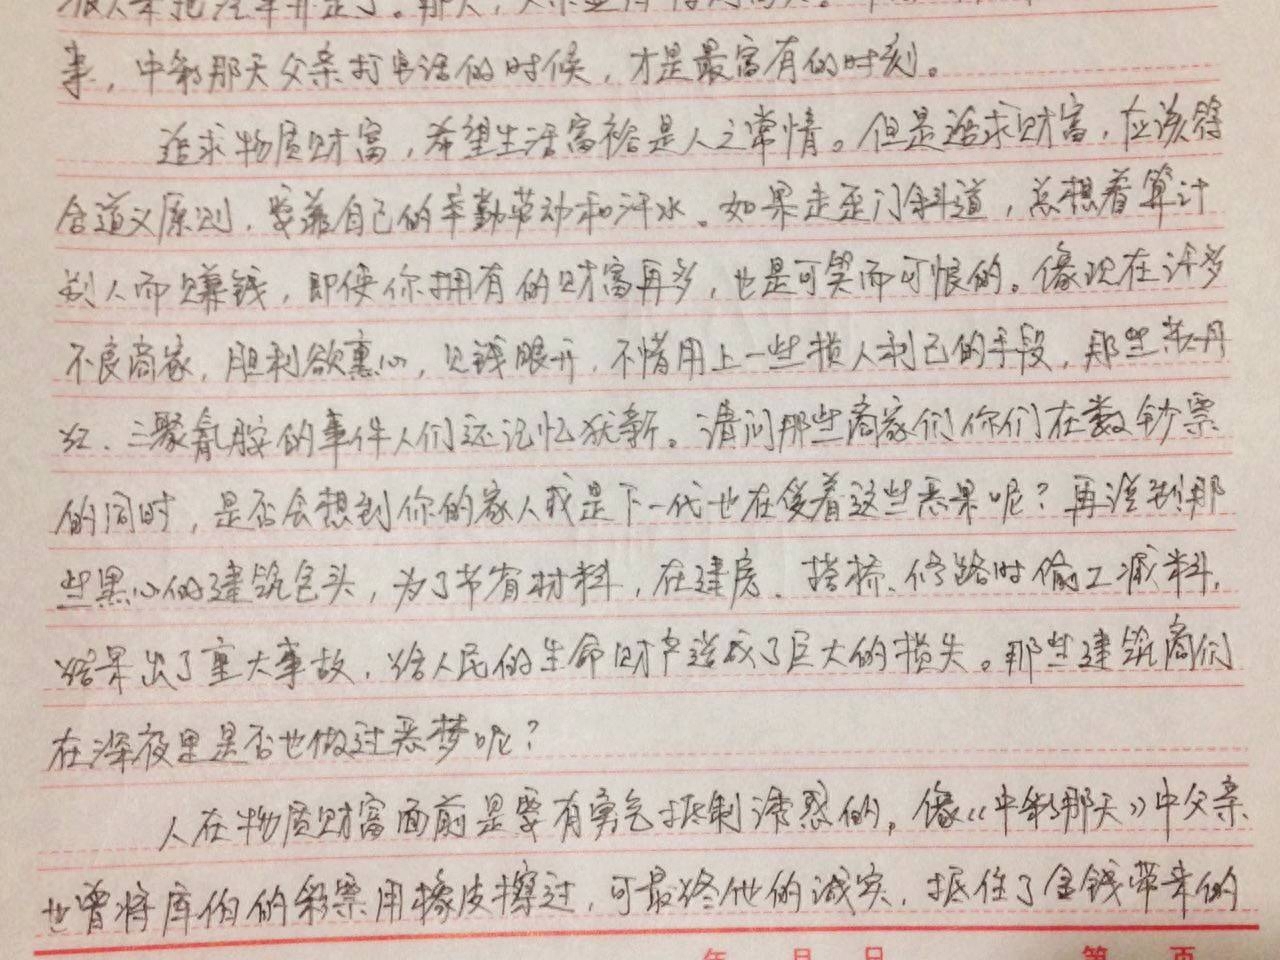 事，中彩那天父亲打电话的时候，才是最富有的时刻。
追求物质财富，希望生活富裕是人之常情。但是追求财富，应该符
合道义原则，要靠自己的辛勤劳动和汗水。如果走歪门斜道，总想着算计
别人而赚钱，即使你拥有的财富再多，也是可笑而可恨的。像现在许多
不良商家，胆利欲熏心，见钱眼开，不惜用上一些损人利己的手段，那些苏丹
红、三聚氰胺的事件人们还记忆犹新。请问那些商家们你们在数钞票
的同时，是否会想到你的家人或是下一代也在受着这些恶果呢？再说到那
些黑心的建筑包头，为了节省材料，在建房、搭桥、修路时偷工减料，
结果出了重大事故，给人民的生命财产造成了巨大的损失。那些建筑商们
在深夜里是否也做过恶梦呢？
人在物质财富面前是要有勇气抵制诱惑的，像《中彩那天》中父亲
也曾将库伯的彩票用橡皮擦过，可最终他的诚实，抵住了金钱带来的
年 月 日 第 页